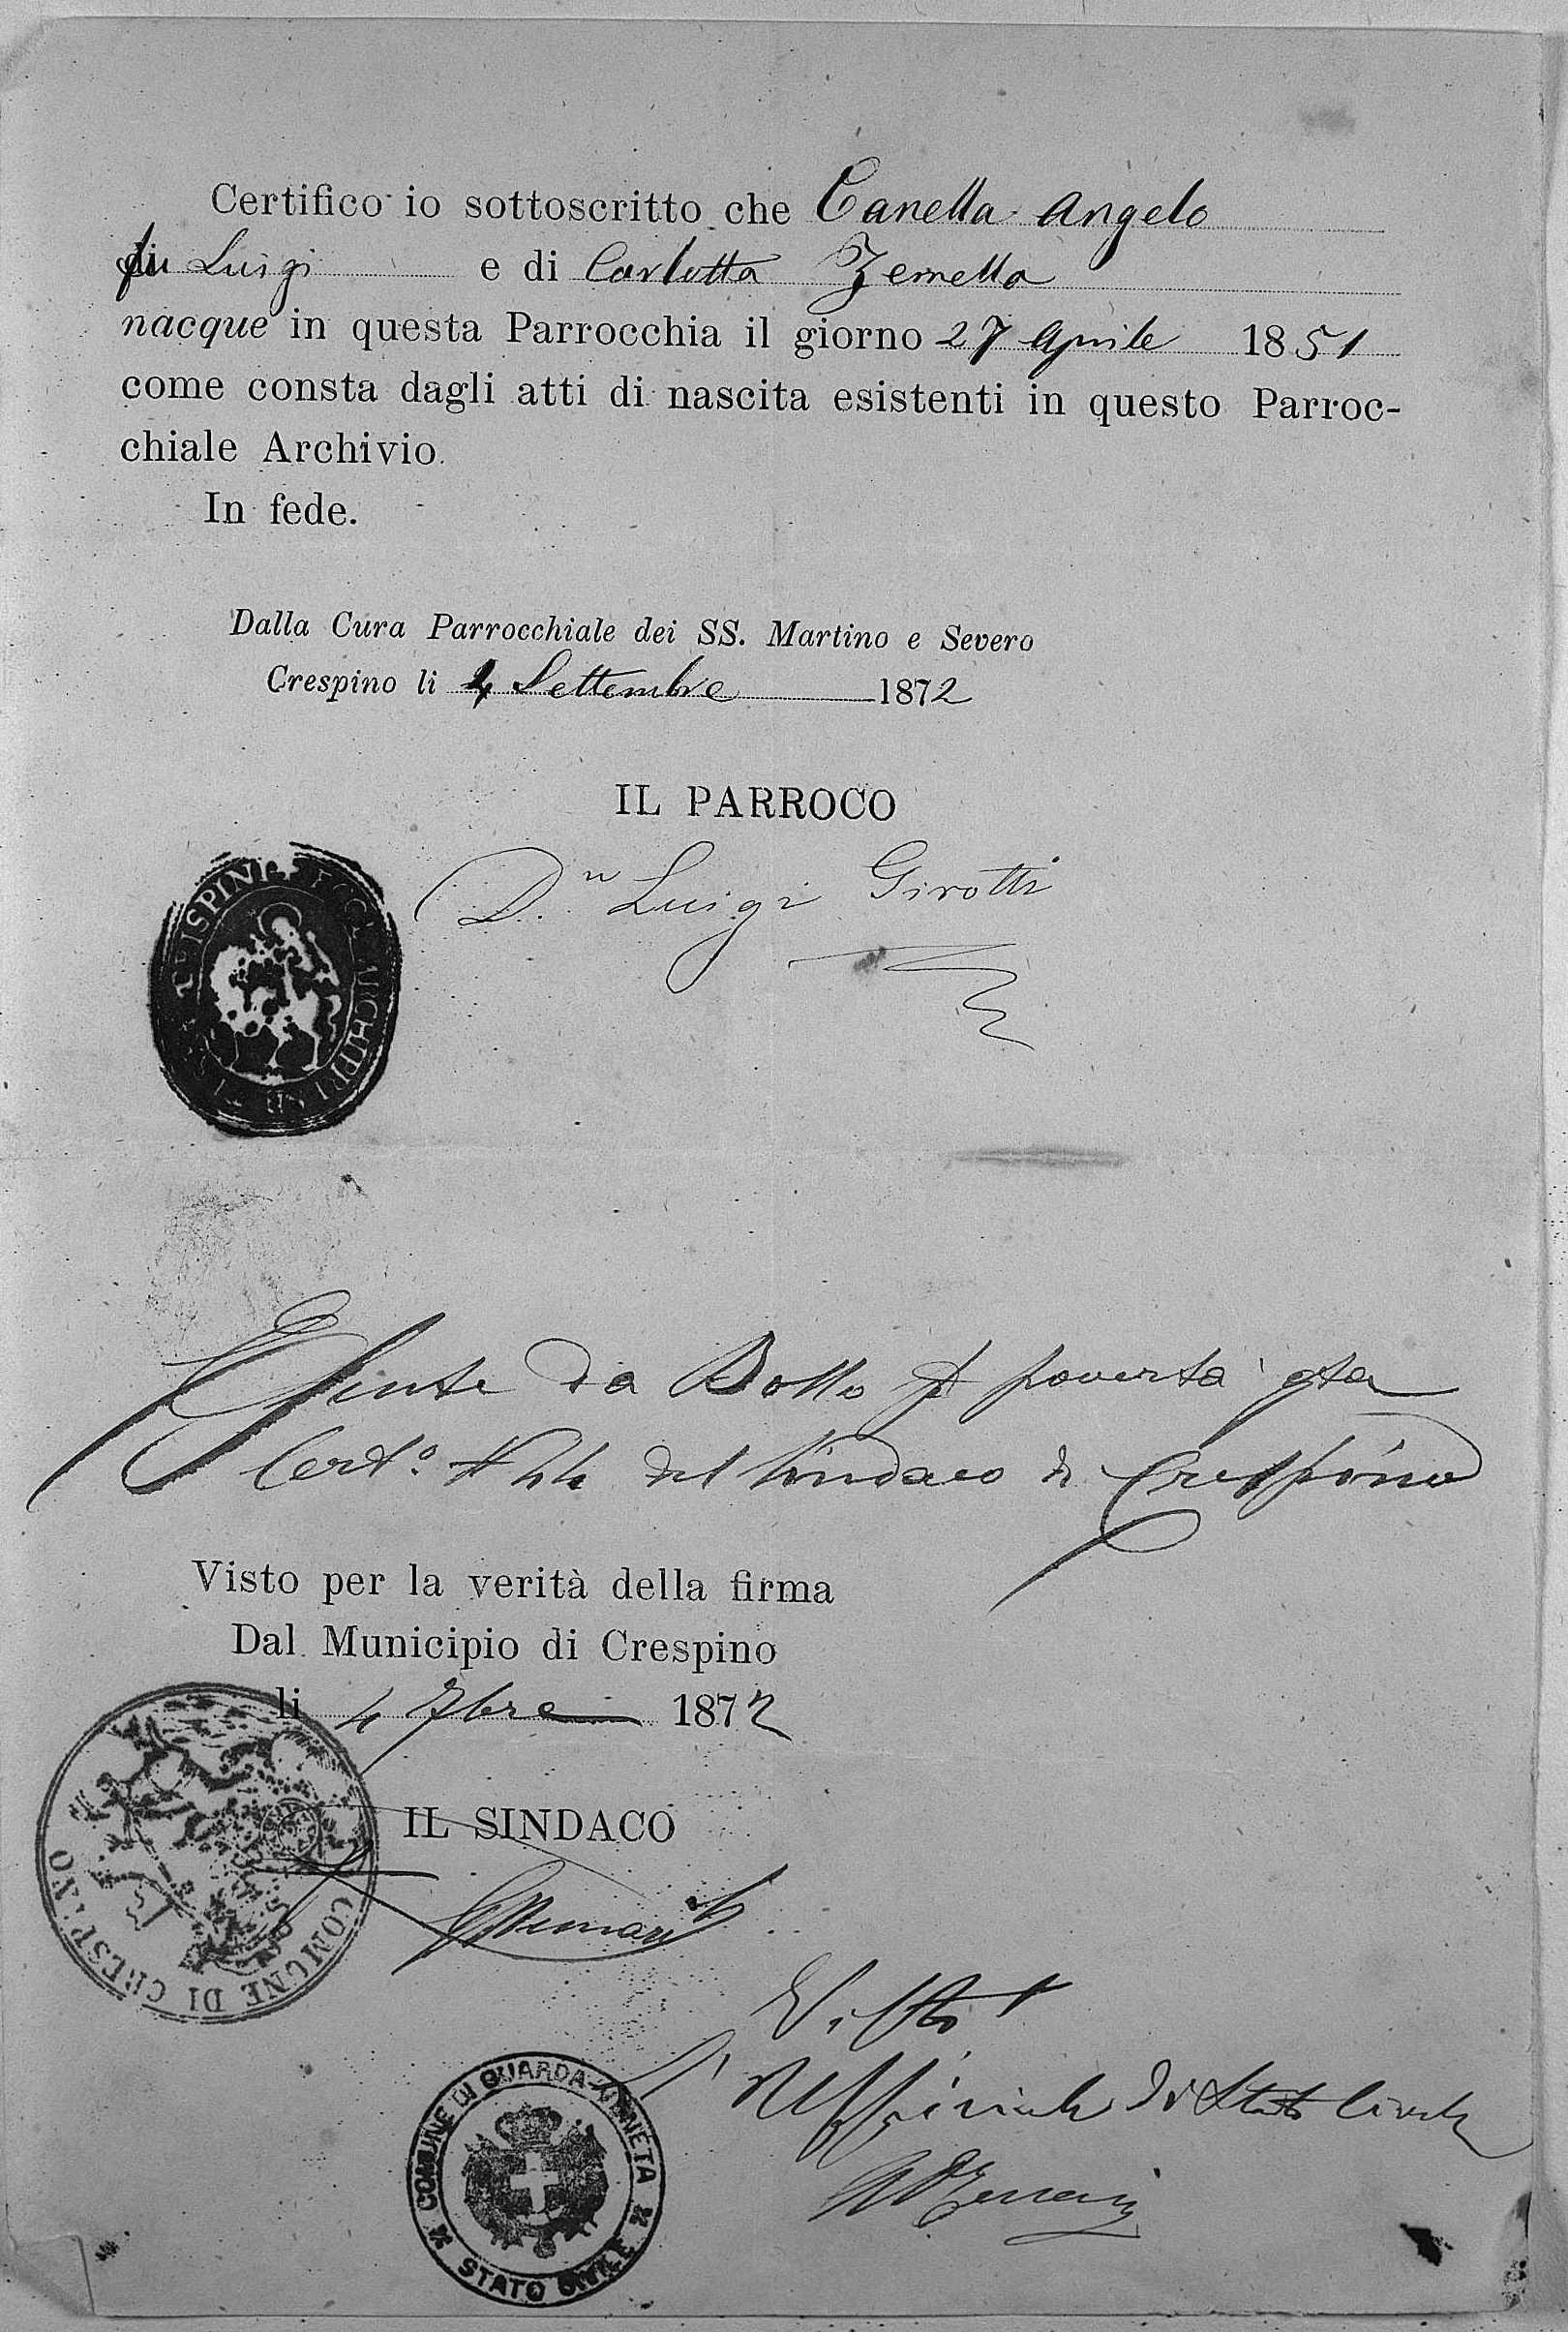 Certifico io sottoscritto che Canella Angelo
fu Luigi e di Carlotta Zemella
nacque in questa Parrocchia il giorno 27 Aprile 1851
come consta dagli atti di nascita esistenti in questo Parroc-
chiale Archivio.
In fede.
Dalla Cura Parrocchiale dei SS. Martino e Severo
Crespino li 4 Settembre 1872
IL PARROCO
Dn Luigi Girotti
Esente da Bollo p povertà
Certo. N 24 del Sindaco di Crespino
Visto per la verità della firma
Dal Municipio di Crespino
li 4 7bre 1872
IL SINDACO
COMUNE DI CRESPINO
Visto
l'Uffiziale di Stato Civile
COMUNE DI GUARDA-VENETA
STATO CIVILE